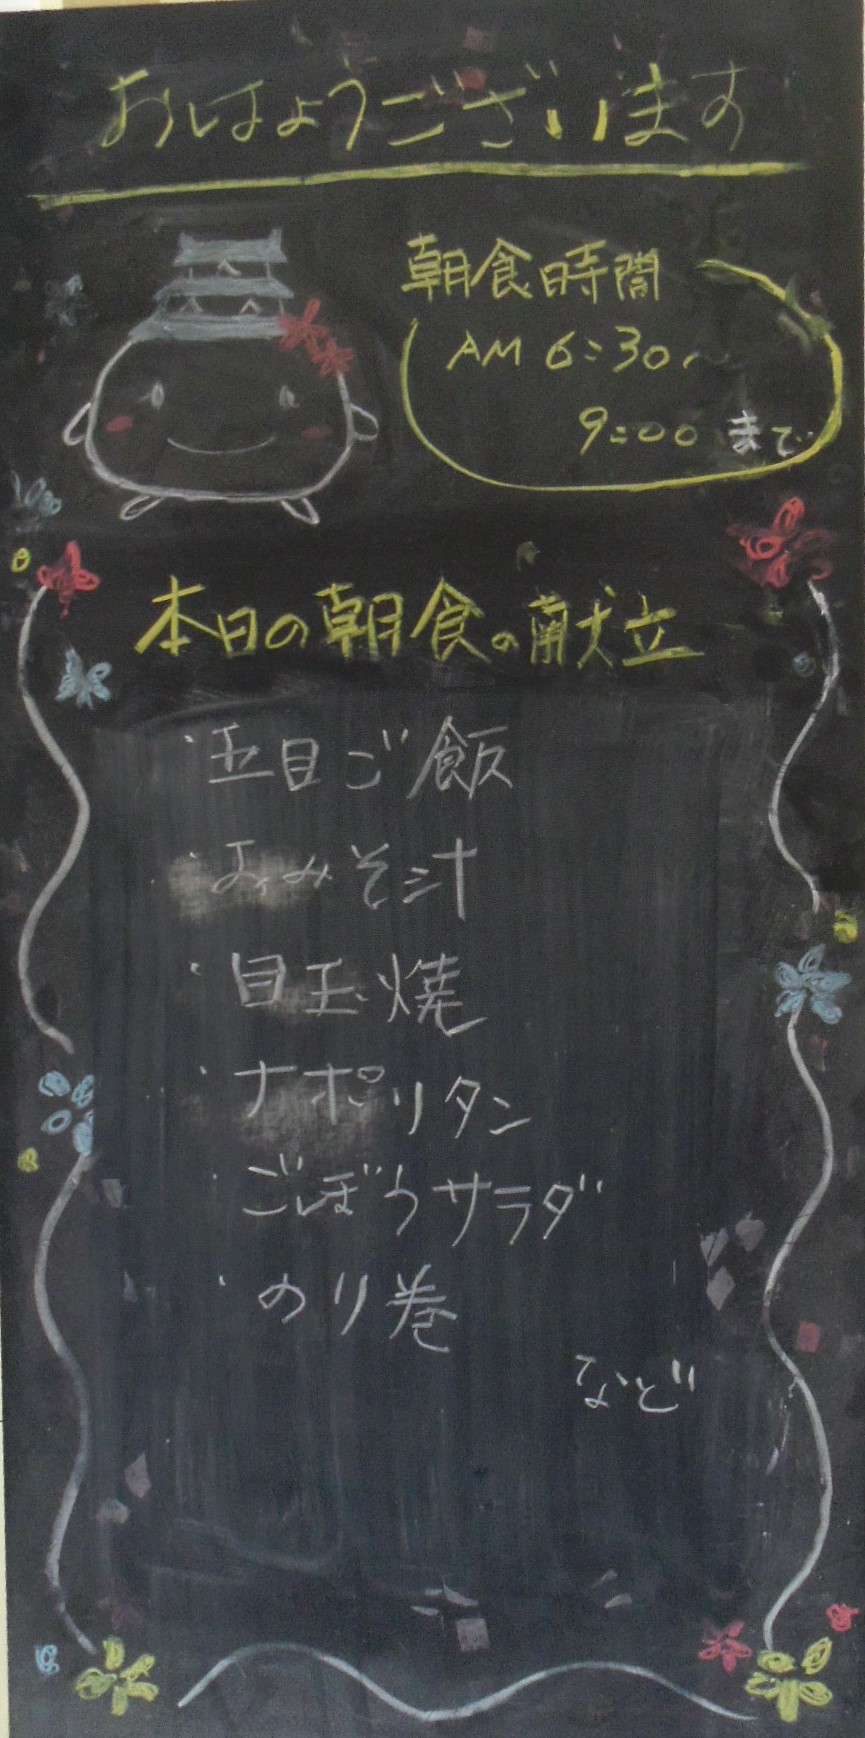 おはようございます
朝食時間
AM 6:30〜
9:00 まで
本日の朝食の献立
・五目ご飯
・おみそ汁
・目玉焼
・ナポリタン
・ごぼうサラダ
・のり巻
など